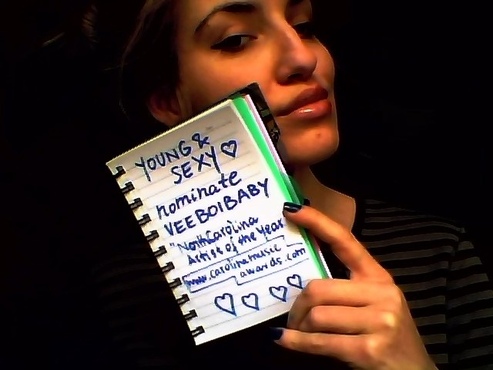 YOUNG &
SEXY ♡
nominate
VEEBOIBABY
"North Carolina
Artist of the Year"
www.carolinamusic
awards.com